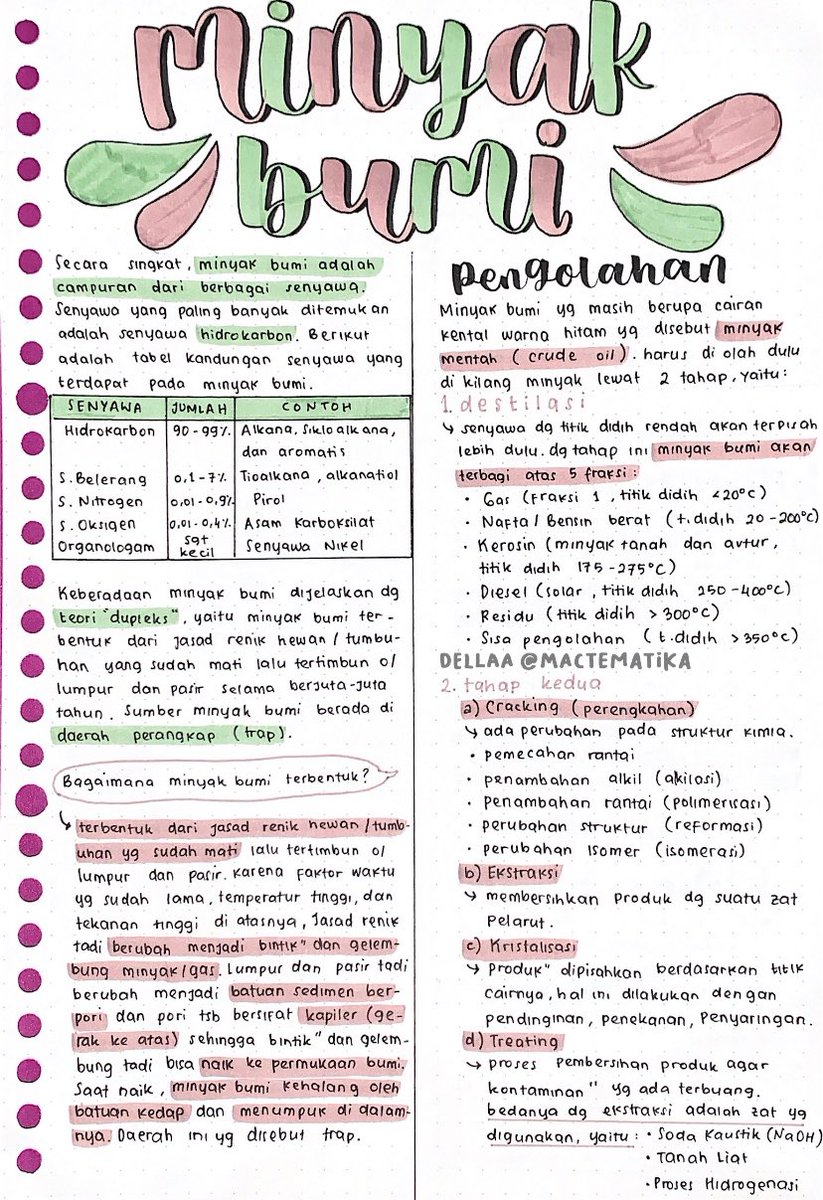 minyak
bumi
Secara singkat, minyak bumi adalah
campuran dari berbagai senyawa.
Senyawa yang paling banyak ditemukan
adalah senyawa hidrokarbon. Berikut
adalah tabel kandungan senyawa yang
terdapat pada minyak bumi.
SENYAWA JUMLAH CONTOH
Hidrokarbon 90-99% Alkana, Sikloalkana,
dan aromatis
S. Belerang 0,1-7% Tioalkana, alkanatiol
S. Nitrogen 0,01-0,9% Pirol
S. Oksigen 0,01-0,4% Asam Karboksilat
Organologam sgt kecil Senyawa Nikel
Keberadaan minyak bumi dijelaskan dg
teori "dupleks", yaitu minyak bumi ter-
bentuk dari jasad renik hewan/tumbu-
han yang sudah mati lalu tertimbun o/
lumpur dan pasir selama berjuta-juta
tahun. Sumber minyak bumi berada di
daerah perangkap (trap).
Bagaimana minyak bumi terbentuk?
↳ terbentuk dari jasad renik hewan/tumb-
uhan yg sudah mati lalu tertimbun o/
lumpur dan pasir. Karena faktor waktu
yg sudah lama, temperatur tinggi, dan
tekanan tinggi di atasnya, Jasad renik
tadi berubah menjadi bintik" dan gelem-
bung minyak/gas. Lumpur dan pasir tadi
berubah menjadi batuan sedimen ber-
pori dan pori tsb bersifat kapiler (ge-
rak ke atas) sehingga bintik" dan gelem-
bung tadi bisa naik ke permukaan bumi.
Saat naik, minyak bumi kehalang oleh
batuan kedap dan menumpuk di dalam-
nya. Daerah ini yg disebut trap.
pengolahan
Minyak bumi yg masih berupa cairan
kental warna hitam yg disebut minyak
mentah (crude oil). harus di olah dulu
di kilang minyak lewat 2 tahap, yaitu:
1. destilasi
↳ senyawa dg titik didih rendah akan terpisah
lebih dulu. dg tahap ini minyak bumi akan
terbagi atas 5 fraksi:
• Gas (fraksi 1, titik didih <20°C)
• Nafta/Bensin berat (t.didih 20-200°C)
• Kerosin (minyak tanah dan avtur,
titik didih 175-275°C)
• Diesel (solar, titik didih 250-400°C)
• Residu (titik didih >300°C)
• Sisa pengolahan (t.didih >350°C)
DELLAA @MACTEMATIKA
2. tahap kedua
a) Cracking (perengkahan)
↳ ada perubahan pada struktur kimia.
• pemecahan rantai
• penambahan alkil (akilasi)
• Penambahan rantai (polimerisasi)
• perubahan struktur (reformasi)
• perubahan Isomer (isomerasi)
b) Ekstraksi
↳ membersihkan produk dg suatu zat
Pelarut.
c) Kristalisasi
↳ Produk" dipisahkan berdasarkan titik
Cairnya, hal ini dilakukan dengan
pendinginan, penekanan, Penyaringan.
d) Treating
↳ proses pembersihan produk agar
kontaminan" yg ada terbuang.
bedanya dg ekstraksi adalah zat yg
digunakan, yaitu: • Soda Kaustik (NaOH)
• Tanah Liat
• Proses Hidrogenasi